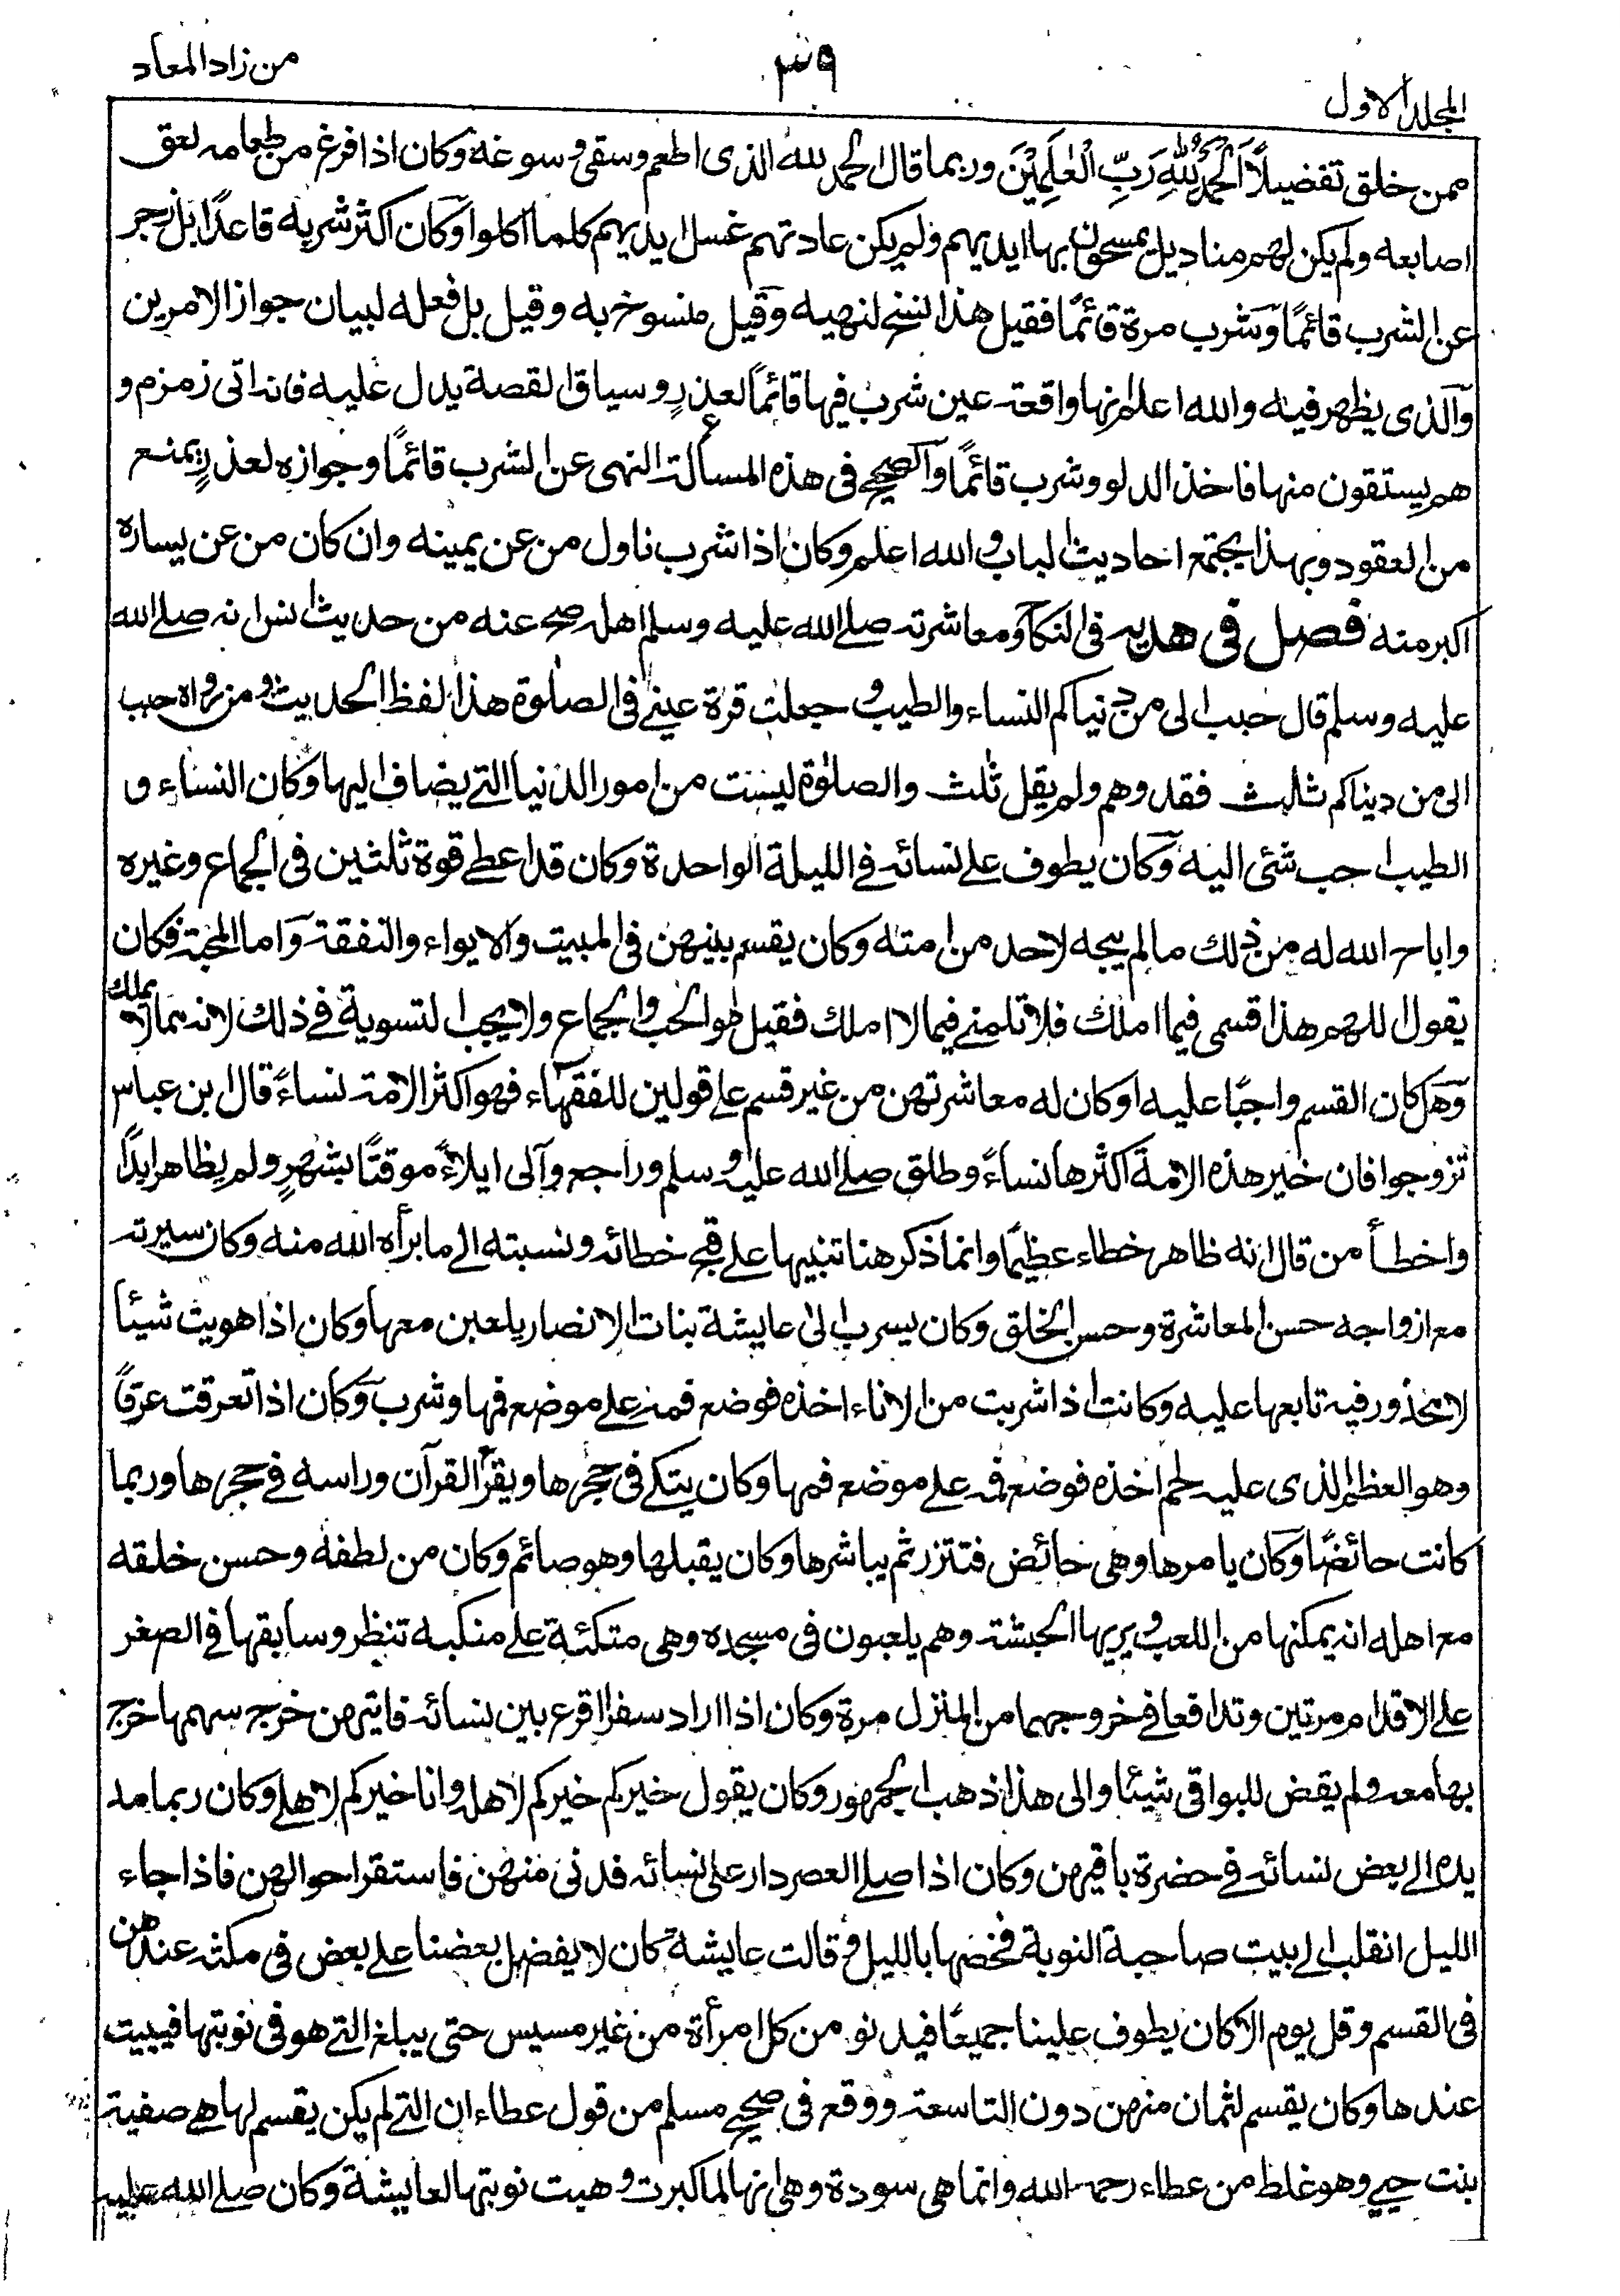 المجلد الاول
٣٩
من زاد المعاد
ممن خلق تفضيلاً اَلْحَمْدُ لِلّٰهِ رَبِّ الْعٰلَمِيْنَ وربما قال الحمد لله الذى اطعم وسقى وسوغه وكان اذا فرغ من طعامه لعق
اصابعه ولم يكن لهم مناديل يمسحون بها ايديهم ولم يكن عادتهم غسل ايديهم كلما اكلوا وكان اكثر شربه قاعدًا بل زجر
عن الشرب قائمًا وشرب مرة قائمًا فقيل هذا نسخ لنهيه وقيل منسوخ به وقيل بل فعله لبيان جواز الامرين
والذى يظهر فيه والله اعلم انها واقعة عين شرب فيها قائمًا لعذرٍ وسياق القصة يدل عليه فانه اتى زمزم و
هم يستقون منها فاخذ الدلو وشرب قائمًا والصحيح فى هذه المسألة النهى عن الشرب قائمًا وجوازه لعذرٍ يمنع
من العقود وبهذا يجتمع احاديث الباب والله اعلم وكان اذا شرب ناول من عن يمينه وان كان من عن يساره
اكبر منه فصل فى هديه فى النكاح ومعاشرته صلى الله عليه وسلم اهله صح عنه من حديث انس انه صلے الله
عليه وسلم قال حبب الى من دنياكم النساء والطيب وجعلت قرة عينے فى الصلوة هذا لفظ الحديث ومن رواه حبب
الى من ديناكم ثالث فقد وهم ولم يقل ثلث والصلوة ليست من امور الدنيا التے يضاف اليها وكان النساء و
الطيب احب شئ اليه وكان يطوف علے نسائه فے الليلة الواحدة وكان قد اعطے قوة ثلثين فى الجماع وغيره
واباح الله له من ذلك مالم يبحه لاحد من امته وكان يقسم بينهن فى المبيت والايواء والنفقة واما المحبة فكان
يقول اللهم هذا قسمى فيما املك فلا تلمنے فيما لا املك فقيل هو الحب والجماع ولا يجب التسوية فے ذلك لانه مما لا يملك
وهل كان القسم واجبًا عليه او كان له معاشرتهن من غير قسم علے قولين للفقهاء فهو اكثر الامة نساءً قال ابن عباس
تزوجوا فان خير هذه الامة اكثرها نساءً وطلق صلے الله عليه وسلم وراجع وآلى ايلاءً موقتًا بشهرٍ ولم يظاهر ابدًا
واخطأ من قال انه ظاهر خطاء عظيمًا وانما ذكر هنا تنبيها علے قبح خطائه ونسبته الے ما برأه الله منه وكان سيرته
مع ازواجه حسن المعاشرة وحسن الخلق وكان يسرب الى عايشة بنات الانصار يلعبن معها وكان اذا هويت شيئا
لا محذور فيه تابعها عليه وكانت اذا شربت من الاناء اخذه فوضع فمه علے موضع فمها وشرب وكان اذا تعرقت عرقًا
وهو العظم الذى عليه لحم اخذه فوضع فمه علے موضع فمها وكان يتكے فى حجرها ويقرأ القرآن وراسه فے حجرها وربما
كانت حائضًا وكان يامرها وهى حائض فتتزر ثم يباشرها وكان يقبلها وهو صائم وكان من لطفه وحسن خلقه
مع اهله انه يمكنها من اللعب ويريها الحبشة وهم يلعبون فى مسجده وهى متكئة علے منكبه تنظر وسابقها فے الصغر
علے الاقدام مرتين وتدافعا فے خروجهما من المنزل مرة وكان اذا اراد سفرا اقرع بين نسائه فايتهن خرج سهمها خرج
بها معه ولم يقض للبواقى شيئا والى هذا ذهب الجمهور وكان يقول خيركم خيركم لاهله وانا خيركم لاهلے وكان ربما مد
يده الے بعض نسائه فے حضرة باقيهن وكان اذا صلے العصر دار على نسائه فدنى منهن فاستقرا حوالهن فاذا جاء
الليل انقلب الے بيت صاحبة النوبة فخصها بالليل وقالت عايشة كان لا يفضل بعضنا علے بعض فى مكثه عندهن
فى القسم وقل يوم الا كان يطوف علينا جميعًا فيدنو من كل امرأة من غير مسيس حتى يبلغ التے هو فى نوبتها فيبيت
عندها وكان يقسم لثمان منهن دون التاسعة ووقع فى صحيح مسلم من قول عطاء ان التے لم يكن يقسم لها هے صفية
بنت حيے وهو غلط من عطاء رحمه الله وانما هى سودة وهى انها لما كبرت وهبت نوبتها لعايشة وكان صلے الله عليه